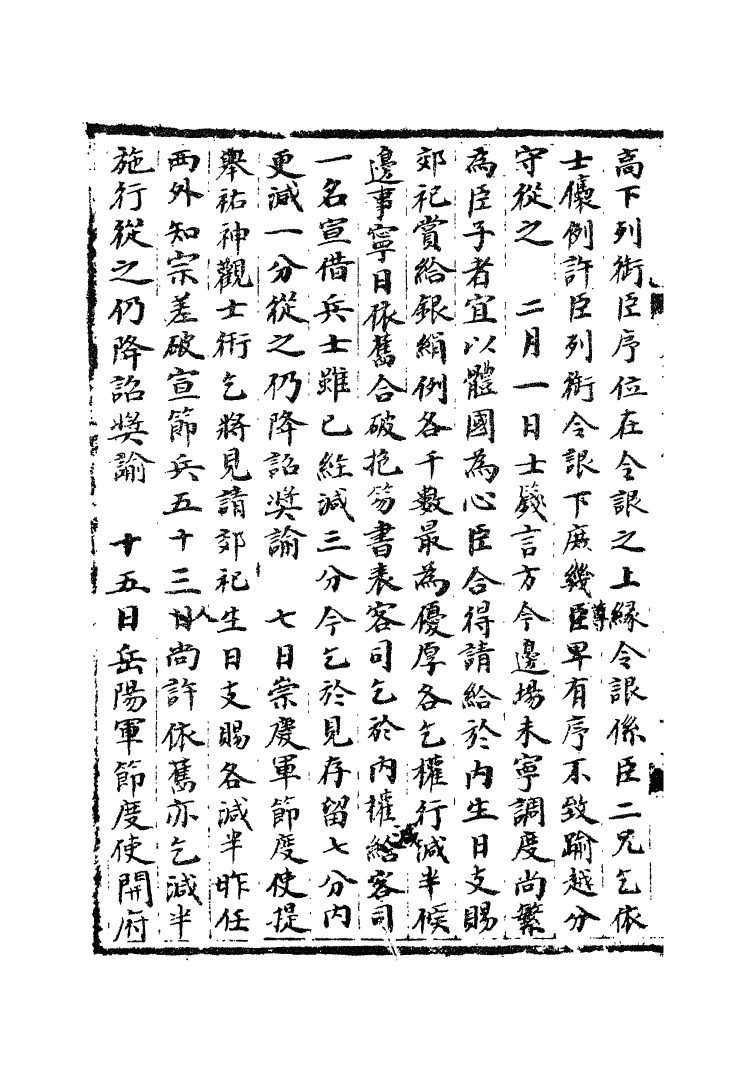 高下列銜臣序位在令詪之上緣令詪係臣二兄乞依
士儴例許臣列銜令詪下庶幾尊卑有序不致踰越分
守從之　二月一日士籛言方今邊場未寧調度尚繁
為臣子者宜以體國為心臣合得請給於內生日支賜
郊祀賞給銀絹例各千數最為優厚各乞權行減半候
邊事寧日依舊合破抱笏書表客司乞於內權減客司
一名宣借兵士雖已經減三分今乞於見存留七分內
更減一分從之仍降詔奬諭　七日崇慶軍節度使提
舉祐神觀士衎乞將見請郊祀生日支賜各減半昨任
西外知宗差破宣節兵五十三人尚許依舊亦乞減半
施行從之仍降詔奬諭　十五日岳陽軍節度使開府